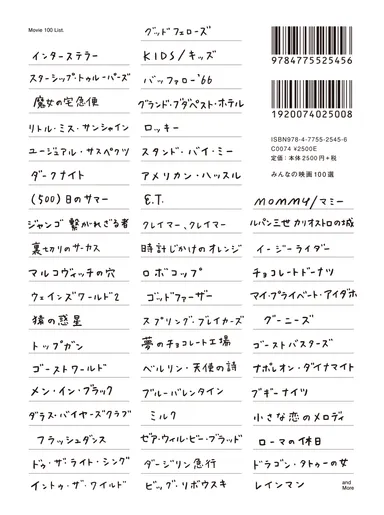 Movie 100 List.
インターステラー
スターシップ・トゥルーパーズ
魔女の宅急便
リトル・ミス・サンシャイン
ユージュアル・サスペクツ
ダークナイト
(500)日のサマー
ジャンゴ 繋がれざる者
裏切りのサーカス
マルコヴィッチの穴
ウェインズワールド2
猿の惑星
トップガン
ゴーストワールド
メン・イン・ブラック
ダラス・バイヤーズクラブ
フラッシュダンス
ドゥ・ザ・ライト・シング
イントゥ・ザ・ワイルド
グッドフェローズ
KIDS/キッズ
バッファロー'66
グランド・ブダペスト・ホテル
ロッキー
スタンド・バイ・ミー
アメリカン・ハッスル
E.T.
クレイマー、クレイマー
時計じかけのオレンジ
ロボコップ
ゴッドファーザー
スプリング・ブレイカーズ
夢のチョコレート工場
ベルリン・天使の詩
ブルーバレンタイン
ミルク
ゼア・ウィル・ビー・ブラッド
ダージリン急行
ビッグ・リボウスキ
9784775525456
1920074025008
ISBN978-4-7755-2545-6
C0074 ¥2500E
定価：本体2500円+税
みんなの映画100選
mommy/マミー
ルパン三世 カリオストロの城
イージーライダー
チョコレートドーナツ
マイ・プライベート・アイダホ
グーニーズ
ゴーストバスターズ
ナポレオン・ダイナマイト
ブギーナイツ
小さな恋のメロディ
ローマの休日
ドラゴン・タトゥーの女
レインマン
and
More